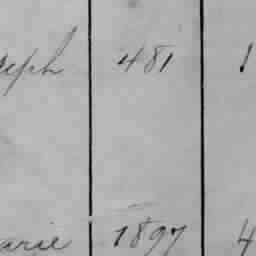 eph 481 1
arie 1897 4